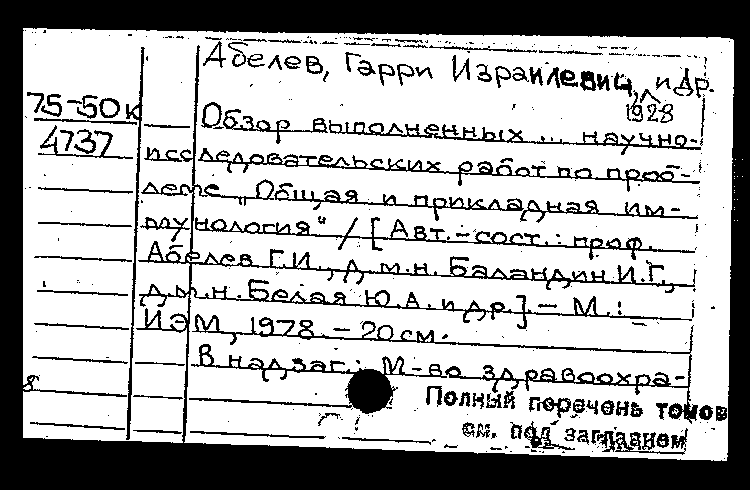 Абелев, Гарри Израилевич, и др.
1928
75-50к
4737
Обзор выполненных ... научно-
исследовательских работ по проб-
леме „Общая и прикладная им-
мунология" / [Авт.-сост.: проф.
Абелев Г.И., д.м.н. Баландин И.Г.,
д.м.н. Белая Ю.А. и др.] - М.:
ИЭМ, 1978. - 20 см.
В надзаг.: М-во здравоохра-
8
Полный перечень томов
см. под заглавием